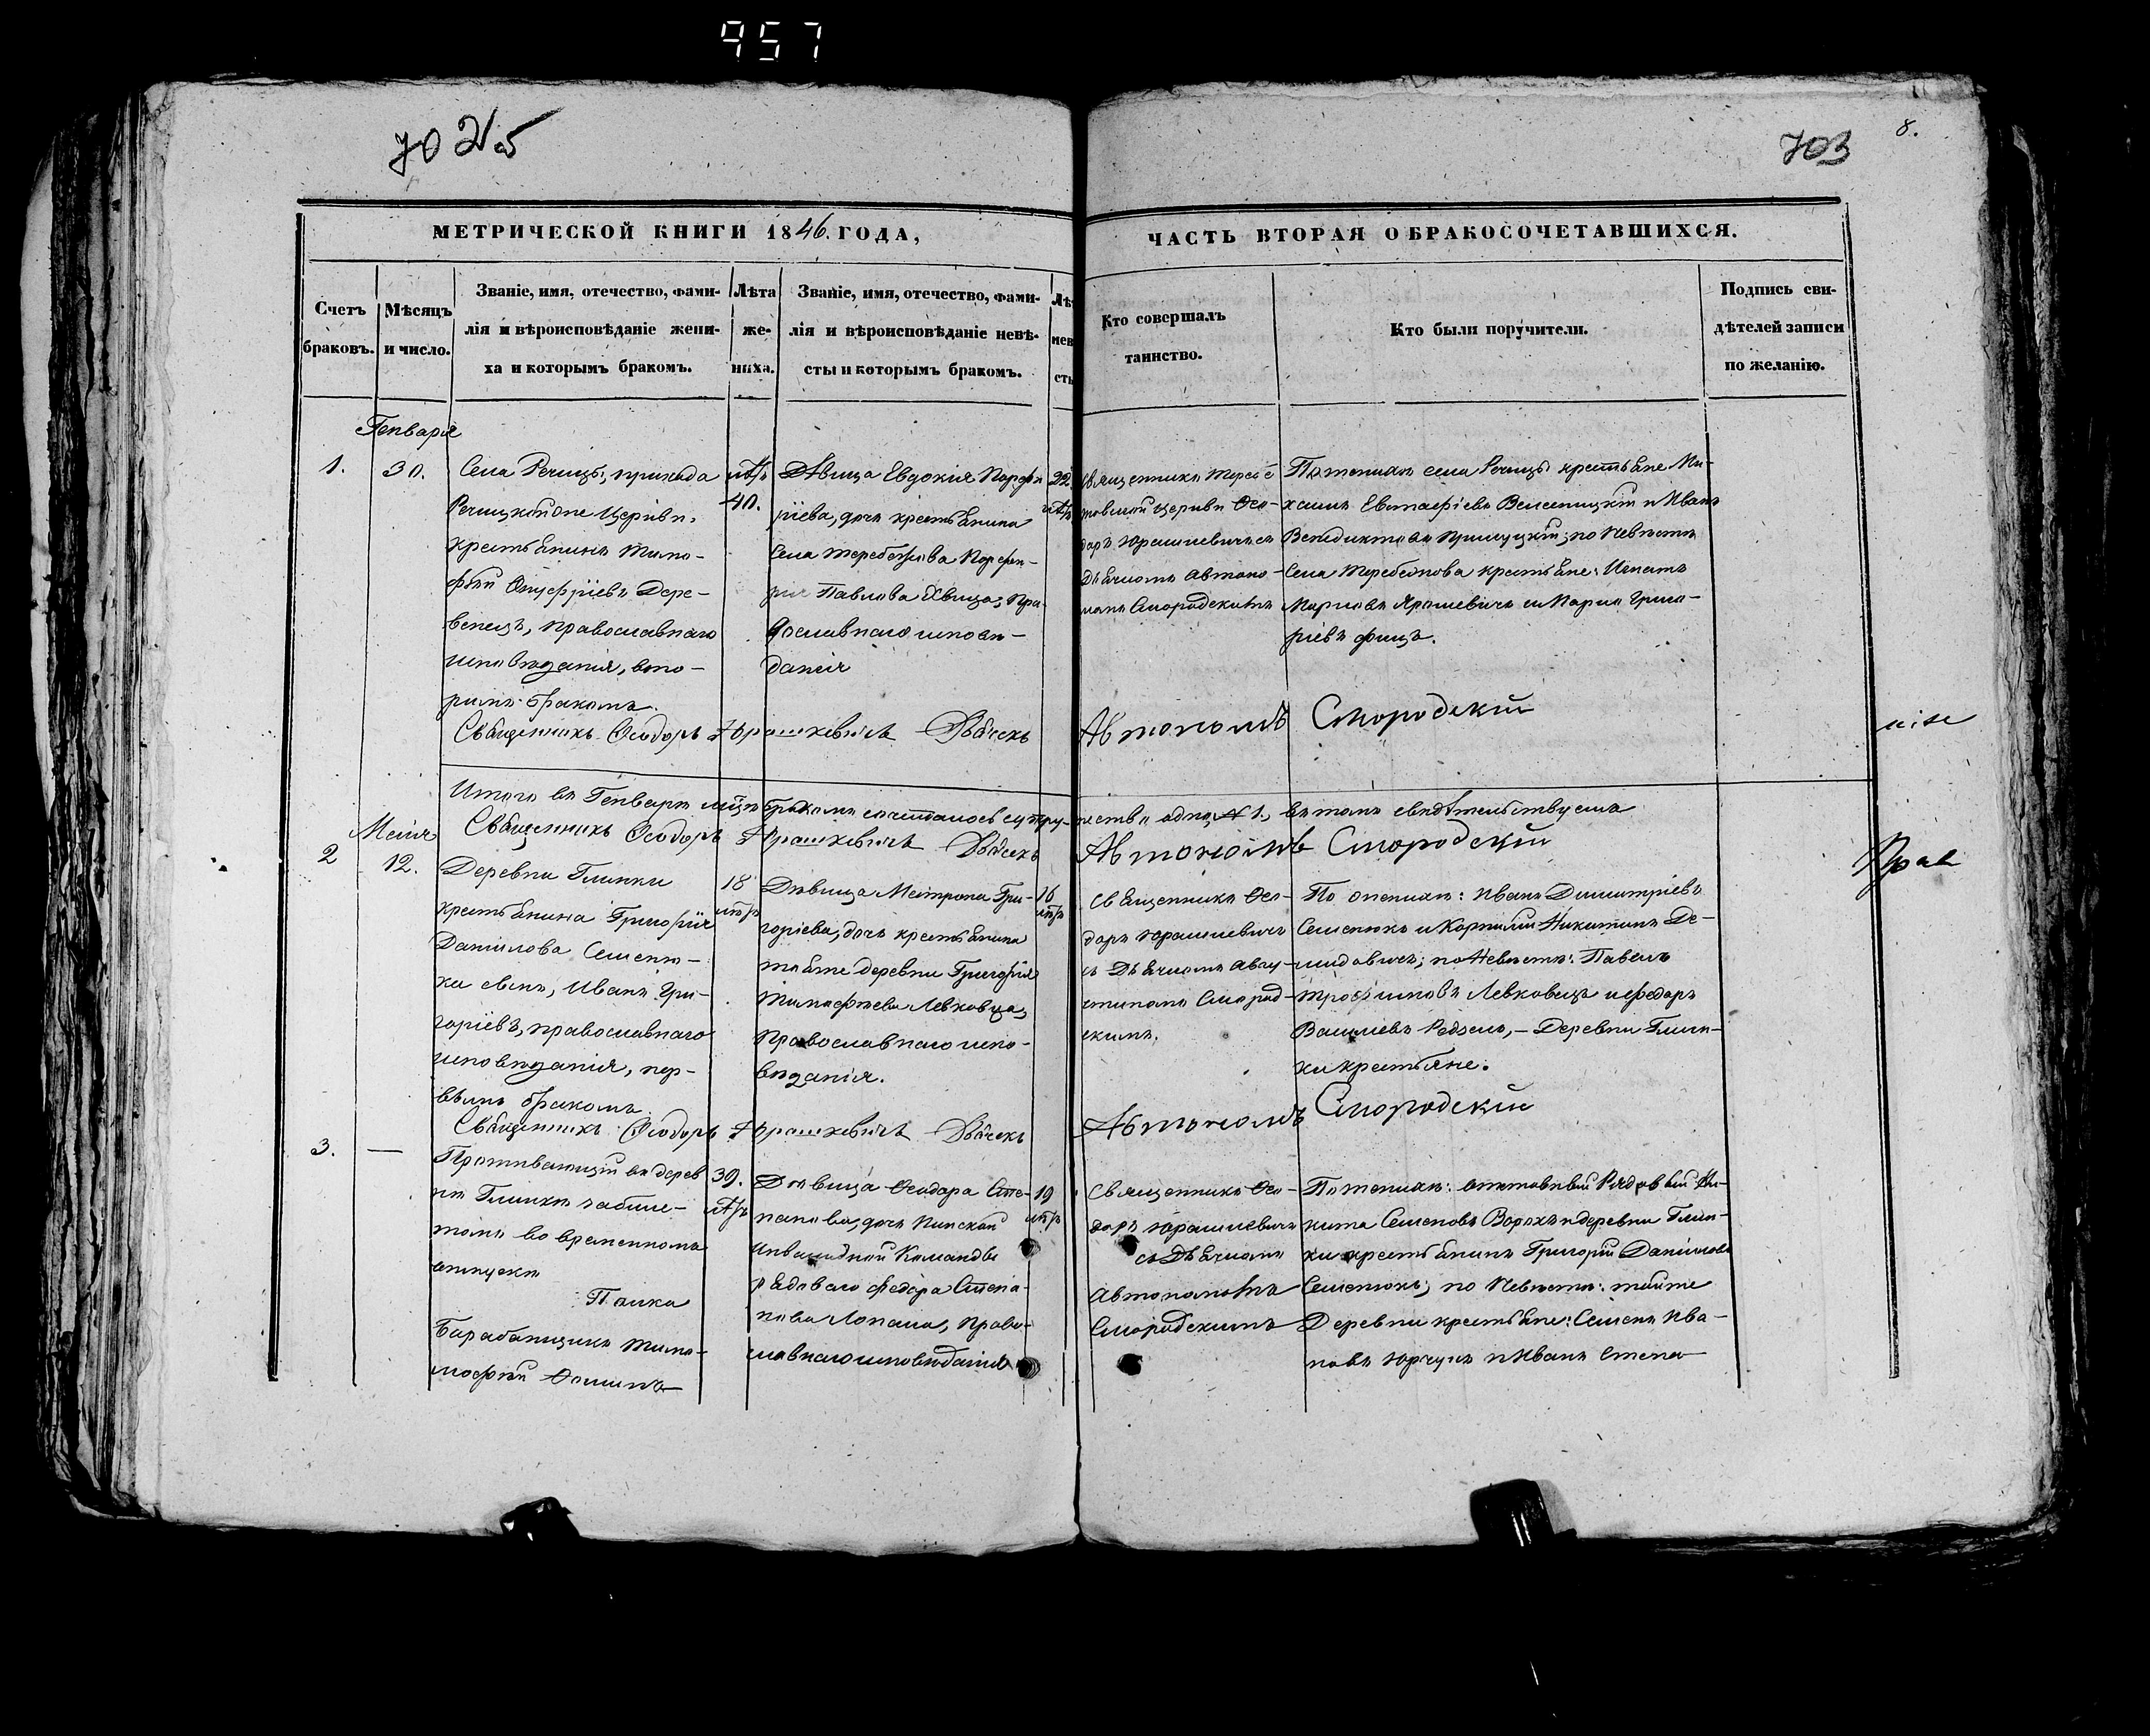 957
702об
703
8.
МЕТРИЧЕСКОЙ КНИГИ 1846. ГОДА,
ЧАСТЬ ВТОРАЯ О БРАКОСОЧЕТАВШИХСЯ.
Счетъ браковъ.
Мѣсяцъ и число.
Званіе, имя, отечество, фами-
лія и вѣроисповѣданіе жени-
ха и которымъ бракомъ.
Лѣта
же-
ниха.
Званіе, имя, отечество, фами-
лія и вѣроисповѣданіе невѣ-
сты и которымъ бракомъ.
Лѣт
нев
сты
Кто совершалъ
таинство.
Кто были поручители.
Подпись сви-
дѣтелей записи
по желанію.
Генваря
1.
30.
Села Речицы, прихода
Речицкой оне Церкви,
крестьянинъ Тимо-
фей Онуфріевъ Дере-
венецъ, православнаго
исповѣданія, вто-
рымъ бракомъ.
лѣтъ
40.
Дѣвица Евдокія Порфи
ріева, дочь крестьянина
Села Теребежова Порфи-
рія Павлова Хвица, пра-
вославнаго исповѣ-
данія
22.
лѣтъ
Священникъ Тереб
товской Церкви Ѳео-
доръ Юрашкевичъ съ
Дьячкомъ Автоно-
момъ Смородскимъ
По женихѣ села Речицы крестьяне Ми-
хаилъ Евстафіевъ и Иванъ
Венедиктовъ по Невѣстѣ
Села Теребежова крестьяне: Игнатъ
Марковъ Ярошевичъ и Марко Григо-
ріевъ фицъ.
Священникъ Ѳеодоръ Юрашкевичъ Дьячекъ
Автономъ Смородскій
Итого въ Генварѣ мцѣ бракомъ сочеталось супру-
жество одно, №1., въ томъ свидѣтельствуемъ
Священникъ Ѳеодоръ Юрашкевичъ Дьячекъ
Автономъ Смородскій
2
Маія
12.
Деревни Глинки
крестьянина Григорія
Данилова Семеню-
ки сынъ, Иванъ Гри-
горіевъ, православнаго
исповѣданія, пер-
вымъ бракомъ
18
лѣтъ
Дѣвица Матрона Гри-
горіева, дочь крестьянина
тояже деревни Григорія
Тимофѣева Левковца,
Православнаго испо-
вѣданія.
16
лѣтъ
Священникъ Ѳео-
доръ Юрашкевичъ
съ Дьячкомъ Авту-
типомъ Смород-
скимъ.
По женихѣ: Иванъ Димитріевъ
Семенюкъ и Корнилій Никитинъ Де-
мидовичъ; по Невѣстѣ: Павелъ
Трофимовъ Левковецъ и Федоръ
Василіевъ Редзель,— Деревни Глин-
ки крестьяне.
Священникъ Ѳеодоръ Юрашкевичъ Дьячекъ
Автономъ Смородскій
3.
—
Проживающій въ дерев
нѣ Глинкѣ забиле-
томъ во временномъ
отпуску
Полка
Барабанщикъ Тимо-
мофей Ѳоминъ
39.
лѣтъ
Дѣвица Ѳеодора Сте-
панова, дочь Пинской
Инвалидной Команды
рядоваго Федора Степа-
нова Лопата, право-
славнаго исповѣданія
19
лѣтъ
Священникъ Ѳео-
доръ Юрашкевичъ
съ Дьячкомъ
Автономомъ
Смородскимъ
По женихѣ: отставный Рядовый Ни-
кита Семеновъ Ворохъ и деревни Глин-
ки крестьянинъ Григорій Даниловъ
Семенюкъ; по Невѣстѣ: тойже
Деревни крестьяне: Семенъ Ива-
новъ Юрчукъ и Иванъ Степа-